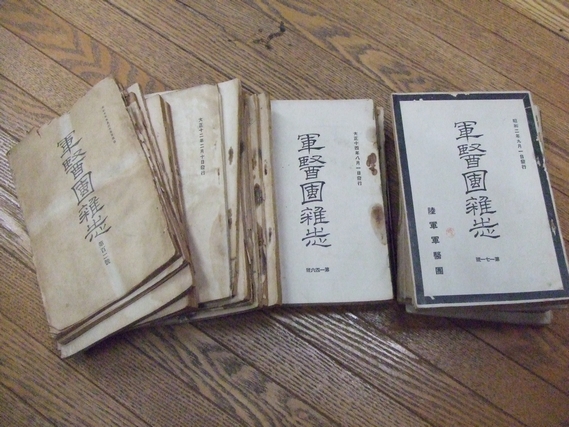 軍醫團雜誌
第百二號
大正十二年二月十日發行
大正十四年八月一日發行
軍醫團雜誌
第一四六號
昭和二年九月一日發行
軍醫團雜誌
陸軍軍醫團
第一七一號